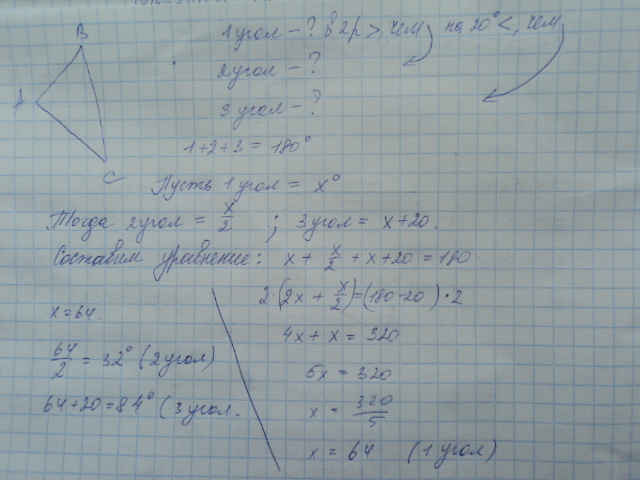 B
1 угол - ? в 2 р >, чем на 20° <, чем
2 угол - ?
A
3 угол - ?
1+2+3 = 180°
C
Пусть 1 угол = x°
Тогда 2 угол = x/2 ; 3 угол = x+20.
Составим уравнение: x + x/2 + x+20 = 180
2·(2x + x/2)=(180-20)·2
x=64.
4x+x = 320
64/2 = 32° (2 угол)
5x = 320
64+20=84° (3 угол.
x = 320/5
x = 64 (1 угол)